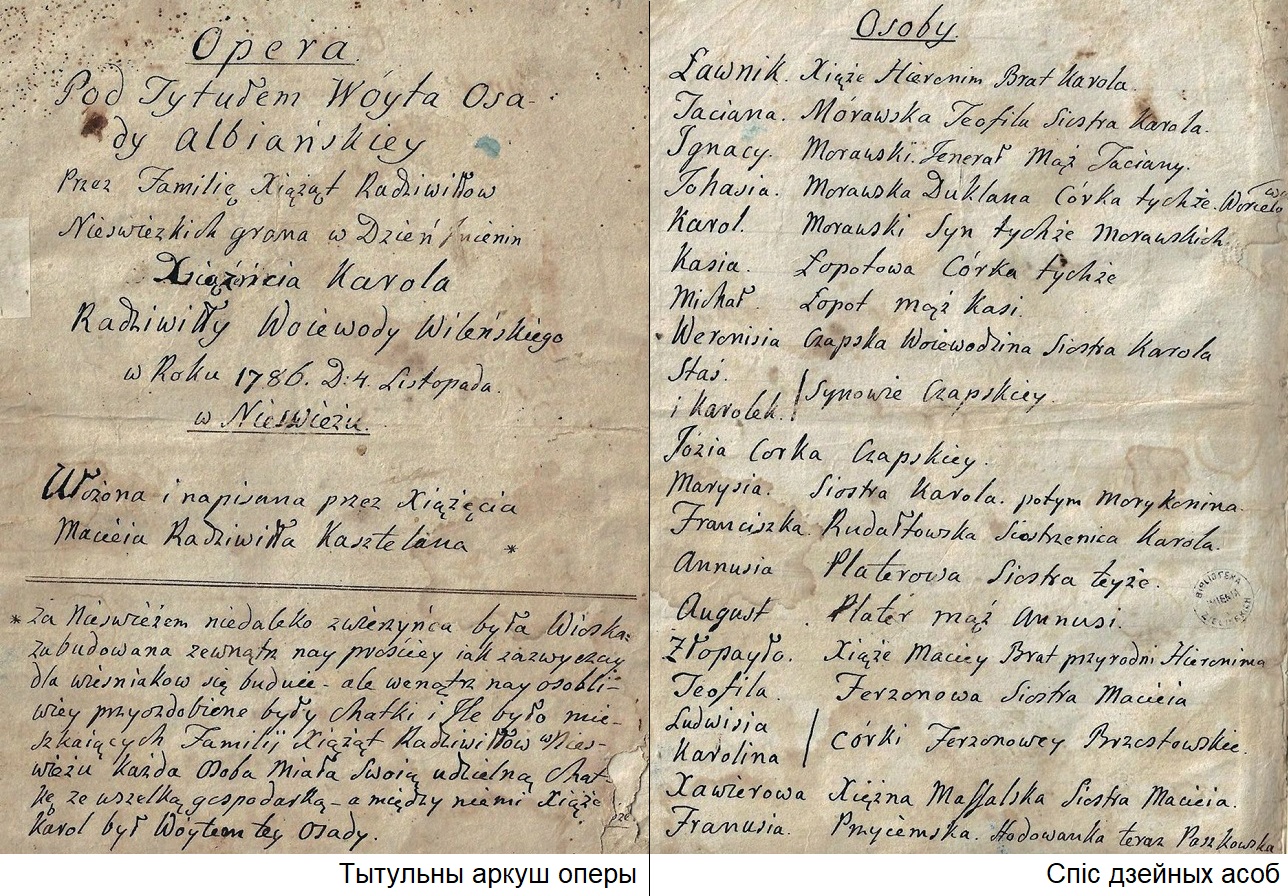 Opera
Pod Tytułem Wóyta Osa-
dy Albiańskiey
Przez Familię Xiążąt Radziwiłłow
Nieswiezkich grana w Dzień Jmienin
Xiążęcia Karola
Radziwiłły Woiewody Wileńskiego
w Roku 1786. D: 4. Listopada.
w Nieswieżu.
Ułożona i napisana przez Xiążęcia
Macieia Radziwiłła Kasztelana *
* za Nieswieżem niedaleko zwierzyńca była Wioska
zabudowana zewnątrz nay prościey iak zazwyczay
dla wieśniakow się buduie - ale wewnątrz nay osobli-
wiey przyozdobione były chatki i Ile było mie-
szkaiących Familij Xiążąt Radziwiłłow w Nies-
wieżu każda Osoba Miała Swoią udzielną chat-
kę ze wszelką gospodarką - a między niemi Xiąże
Karol był Wóytem tey Osady.
Тытульны аркуш оперы
Osoby.
Ławnik. Xiąże Hieronim Brat Karola.
Taciana. Morawska Teofila Siostra Karola.
Ignacy. Morawski. Jenerał Mąż Taciany.
Tohasia. Morawska Duklana Córka tychże.
Karol. Morawski Syn tychże Morawskich.
Kasia. Łopotowa Córka tychże
Michał. Łopot mąż Kasi.
Weronisia Czapska Woiewodzina Siostra Karola
Staś.
i Karolek. Synowie Czapskiey.
Józia Corka Czapskiey.
Marysia. Siostra Karola. potym Morykonina.
Franciszka. Rudałtowska Siostrzenica Karola.
Annusia Platerowa Siostra teyże.
August. Plater mąż Annusi.
Złopayło. Xiąże Maciey Brat przyrodni Hieronima
Teofila. Jerzonowa Siostra Macieia
Ludwisia
Karolina córki Jerzonowey Brzostowskie.
Xawierowa Xiężna Massalska Siostra Macieia.
Franusia. Przyiemska. Hodowanka teraz Paszkowska
BIBLIOTEKA
Спіс дзейных асоб